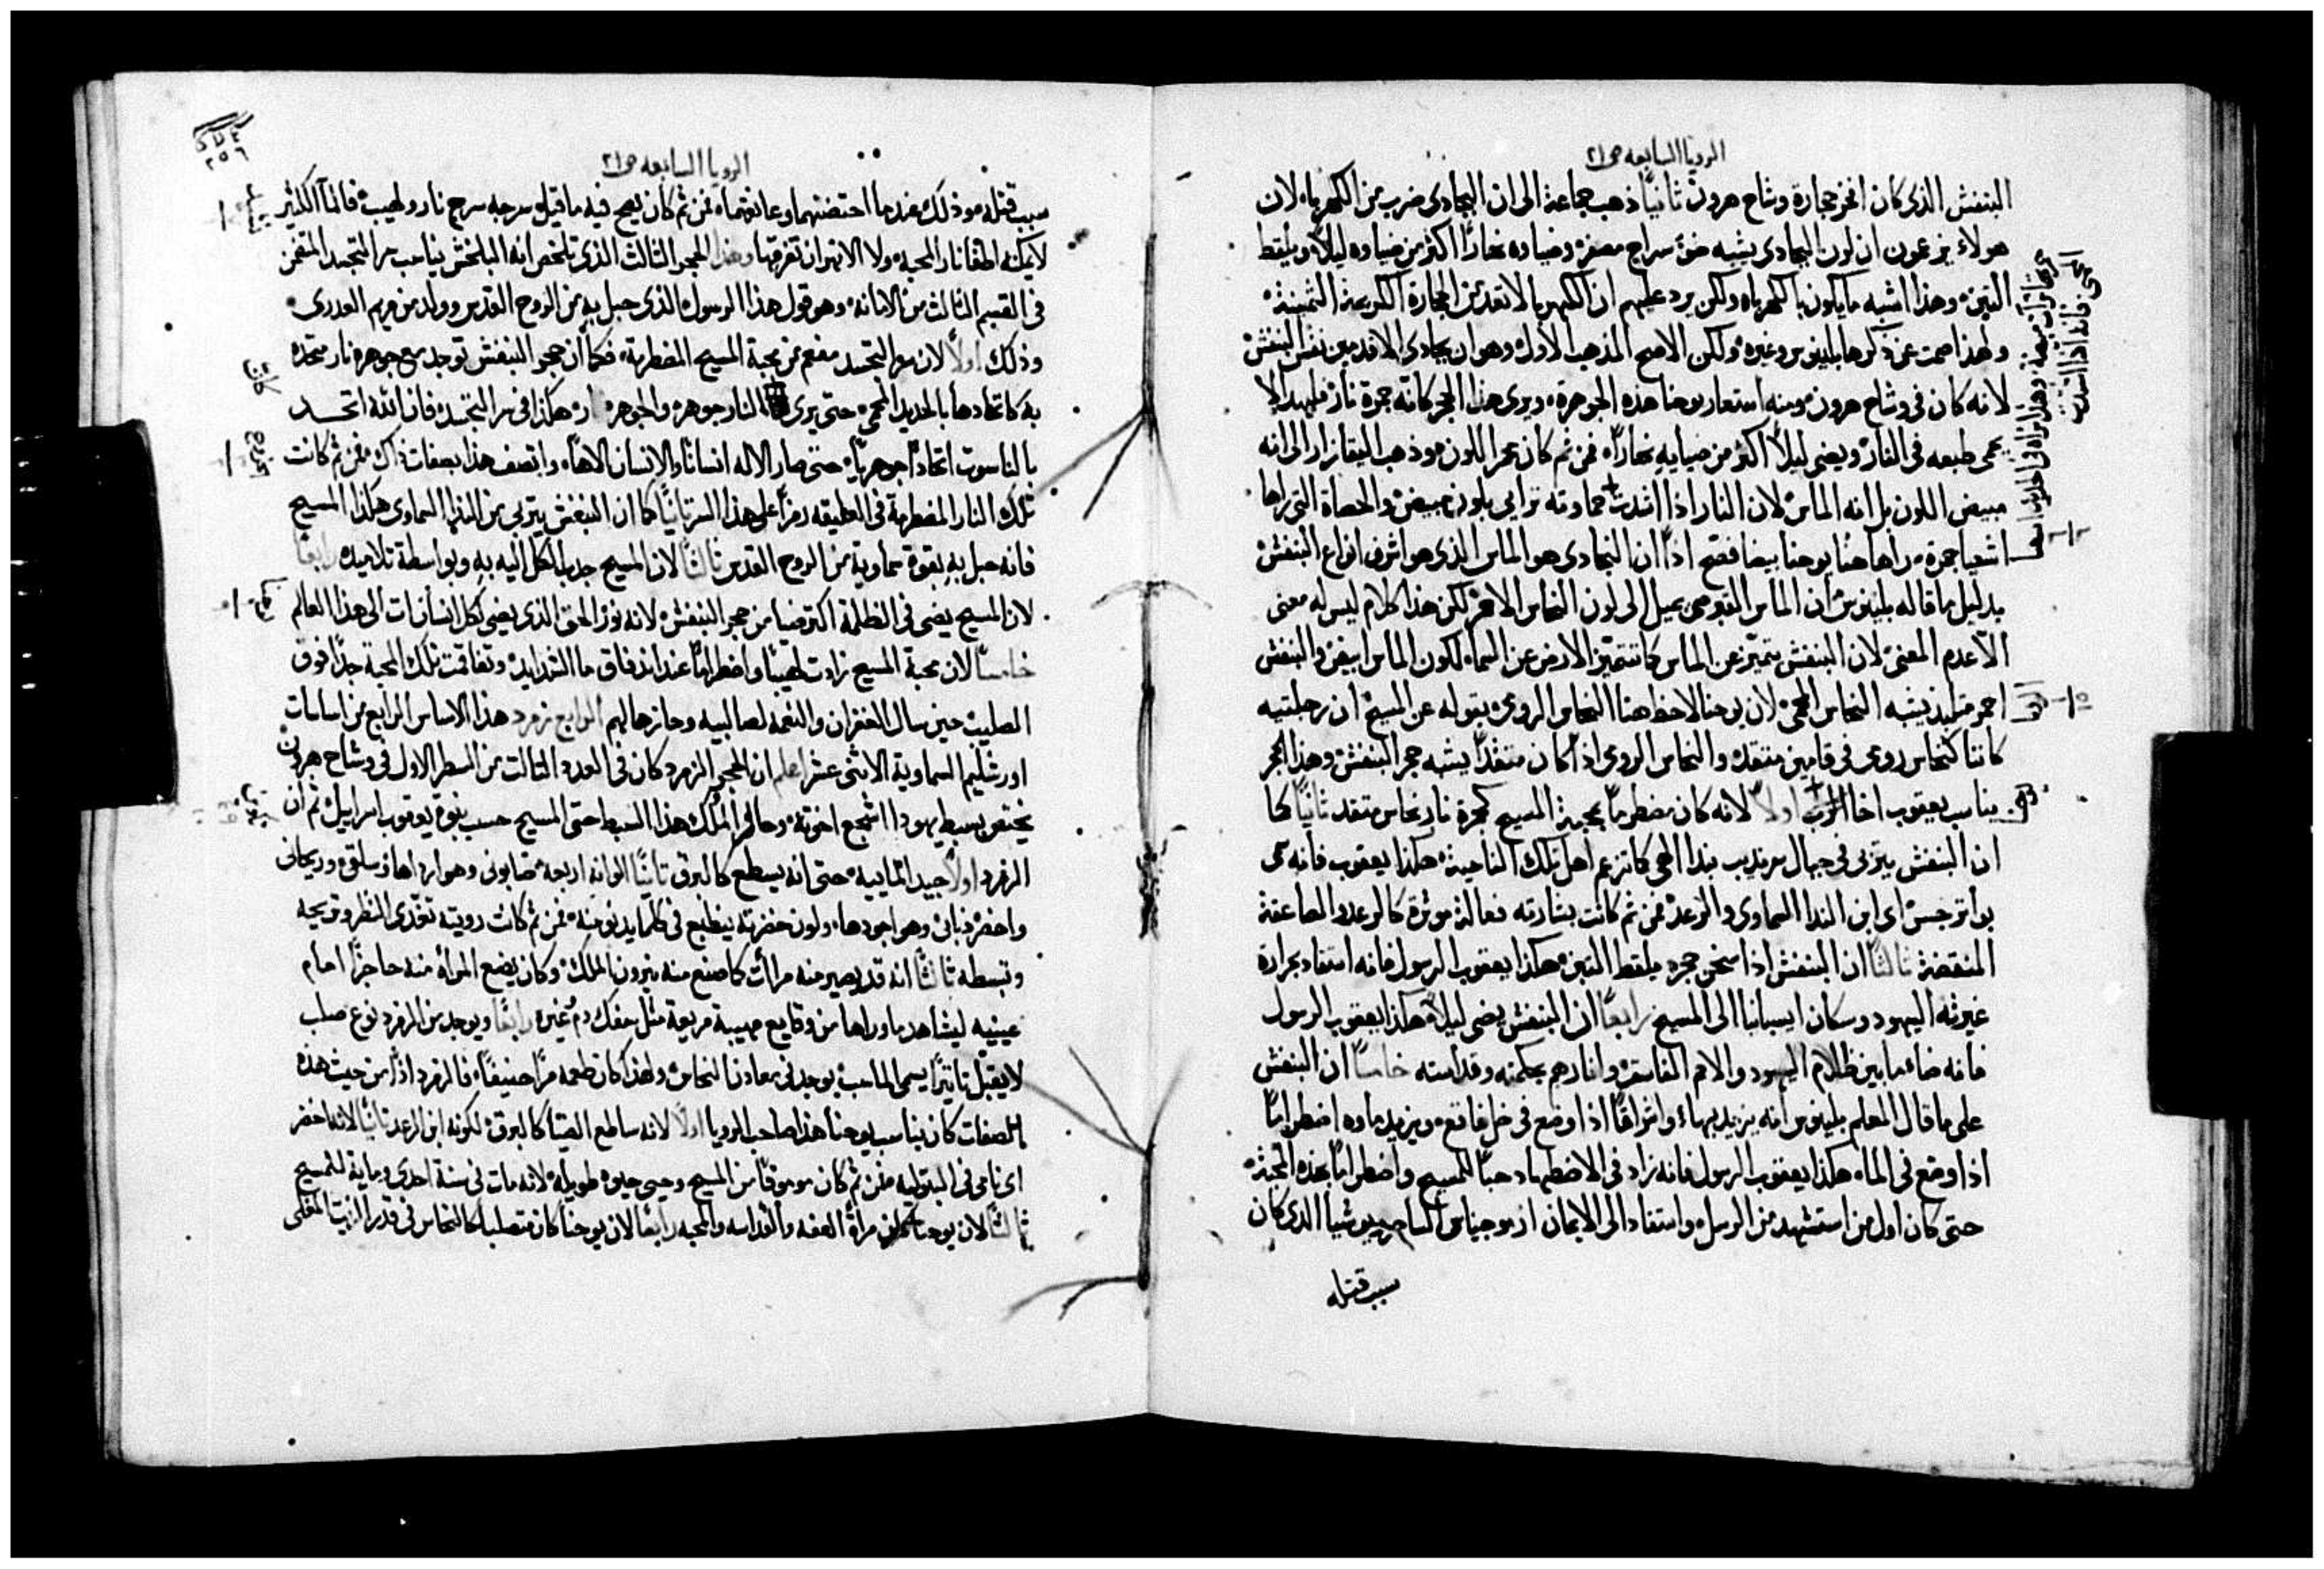 الرويا السابعه ص ٢١
البنفش الذى كان افخر حجارة وشاح هرون ثانيًا ذهب جماعة الى ان البجادى ضرب من الكهرباء لان
هولاء يزعمون ان لون البجادى يشبه ضؤ سراج مصفر وضياوه نهارًا اكثر من ضياوه ليلًا ويلقط
التبن وهذا اشبه مايكون بالكهرباء ولكن يرد عليهم ان الكهربا لا تعد من الحجارة الكريمة الثمينة
ولهذا صمت عن ذكرها بلينوس وغيره ولكن الاصح المذهب الاول وهو ان بجادى الاقدمين نفس البنفش
لانه كان فى وشاح هرون ومنه استعار يوحنا هذه الجوهرة ويرى هذا الحجر كانه جمرة نار
يحمى طبعه فى النار ويضى ليلًا اكثر من ضيايه نهارًا فمن ثم كان محمر اللون وذهب اليقازار الى انه
مبيض اللون بل انه الماس لان النار اذا اشتدت حماوته ترايى بلون مبيض والحصاة التى راها
اشعيا جمرة راها هنا يوحنا بيضا فصح اذًا ان البجادى هو الماس الذى هو اشرف انواع البنفش
بدليل ما قاله بلينوس ان الماس القبرصى يميل الى لون النحاس الاحمر لكن هذا كلام ليس له معنى
الا عدم المعنى لان البنفش يتميز عن الماس كما تتميز الارض عن السماء لكون الماس ابيض والبنفش
احمر متلهبذ يشبه النحاس المحمى لان يوحنا لاحظ هنا النحاس الرومى بقوله عن المسيح ان رجليه
كانتا كنحاس رومى فى قامين متقد والنحاس الرومى اذا كان متقدًا يشبه حجر البنفش وهذا الحجر
يناسب يعقوب اخا الرب اولًا لانه كان مضطرمًا بمحبة المسيح كجمرة نار نحاس متقد ثانيًا كما
ان البنفش يتربى فى جبال سرنديب بندا الحى كما تزعم اهل تلك الناحية هكذا يعقوب فانه سمى
بوانرجس اى ابن الندا السماوى والرعد فمن ثم كانت بشارته فعالة موثرة كالرعد والصاعقة
المنقضة ثالثًا ان البنفش اذا سخن حجره يلقط التبن هكذا يعقوب الرسول فانه استفاد بحرارة
غيرته اليهود وسكان اسبانيا الى المسيح رابعًا ان البنفش يضى ليلًا هكذا يعقوب الرسول
فانه ضاء مابين ظلام اليهود والامم الفاسقة وانارهم بحكمته وقداسته خامسًا ان البنفش
على ما قال المعلم بلينوس انه يزيد بهاء واشراقًا اذا وضع فى خل فاقع ويزيد ماوه اضطرامًا
اذا وضع فى الماء هكذا يعقوب الرسول فانه زاد فى الاضطهاد حبًا للمسيح واضطرامًا بهذه المحبة
حتى كان اول من استشهد من الرسل واستفاد الى الايمان يوشيا الذى كان
سبب قتله
الرويا السابعه ص ٢١
سبب قتله وذلك عندما احتضنهما وعانقهما فمن ثم كان يصح فيه ماقيل سرجه سرج نار ولهيب فالماء الكثير
لا يمكنه اطفا نار المحبة ولا الانهر ان تغرقها وهذا الحجر الثالث الذى تلخص انه البلخش يناسب سر التجسد المتضمن
فى القسم الثالث من الامانه وهو قول هذا الرسول الذى حبل به من الروح القدس وولد من مريم العدرى
وذلك اولًا لان سر التجسد مفعم من محبة المسيح المضطرمة فكما ان حجر البنفش توجد مع جوهره نار متحدة
به كاتحادها بالحديد المحمى حتى يرى النار جوهرة والجوهرة نار هكذا فى سر التجسد فان الله اتحد
بالناسوت اتحادًا جوهريًا حتى صار الاله انسانًا والانسان الاهًا واتصف هذا بصفات ذاك فمن ثم كانت
تلك النار المضطرمة فى العليقه رمزًا على هذا السر ثانيًا كما ان البنفش يتربى من الندا السماوى هكذا المسيح
فانه حبل به بقوة سماوية من الروح القدس ثالثًا لان المسيح جذب الكل اليه به وبواسطة تلاميذه رابعًا
لان المسيح يضى فى الظلمة اكثر ضيا من حجر البنفش لانه نور الحق الذى يضى لكل انسان ات الى هذا العالم
خامسًا لان محبة المسيح زادت لهيبًا واضطرامًا عند اندفاق ما الشدايد وتفاقمت تلك المحبة جدًا فوق
الصليب حين سال الغفران والنعمه لصالبيه وحازها لهم الرابع زمرد هذا الاساس الرابع من اساسات
اورشليم السماوية الاثنى عشر اعلم ان الحجر الزمرد كان فى العدد الثالث من السطر الاول فى وشاح هرون
يختص بسبط يهودا اشجع اخوته وحاكم الملك هذا السبط حتى المسيح حسب نبوة يعقوب اسراييل ثم ان
الزمرد اولًا جيد المايية حتى انه يسطع كالبرق ثانيًا الوانه اربعة صابونى وهو ارداها وسلقى وريحانى
واخضر ذبابى وهو اجودها ولون خضرته ينطبع فى كلما يدنو منه فمن ثم كانت رويته تغذى النظر وتريحه
وتبسطه ثالثًا انه قد يصير منه مرأت كما صنع منه نيرون الملك وكان يضع المرأة منه حاجزًا امام
عينيه ليشاهد ماوراها من وقايع مهيبة مريعة مثل سفك دم غيره رابعًا ويوجد من الزمرد نوع صلب
لا يقبل تاثيرًا يسمى الماسب يوجد فى معادن النحاس ولهذا كان طعمه مرًا حنيفًا فالزمرد اذًا من حيث هذه
الصفات كان يناسب يوحنا هذا صاحب الرويا اولًا لانه ساطع الضيا كالبرق لكونه ابن الرعد ثانيًا لانه اخضر
اى نامى فى البتوليه فمن ثم كان موموقًا من المسيح وحيى حيوة طويلة لانه مات فى سنة احدى ومايه للمسيح
ثالثًا لان يوحنا كان مرأة العفه والقداسه والمحبه رابعًا لان يوحنا كان متصلبًا كالنحاس فى قدر الزيت المغلى